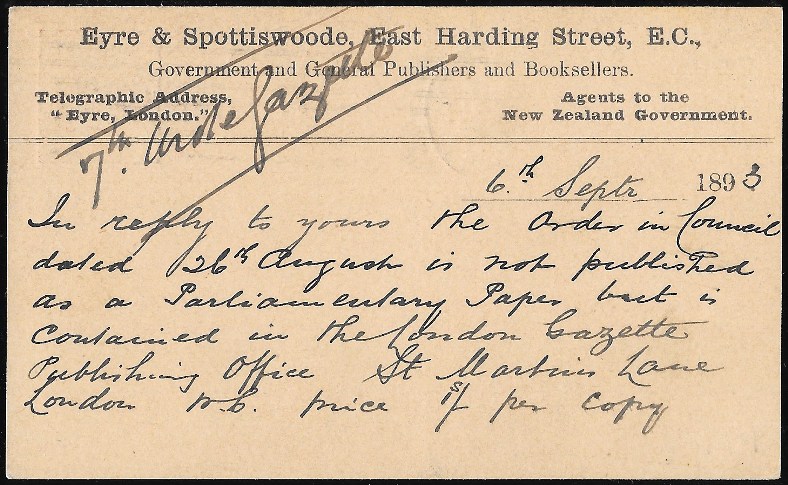 Eyre & Spottiswoode, East Harding Street, E.C.,
Government and General Publishers and Booksellers.
Telegraphic Address,
"Eyre, London."
Agents to the
New Zealand Government.
7th. Gazette
6.th Septr 1893
In reply to yours the Order in Council
dated 26th August is not published
as a Parliamentary Paper but is
contained in the London Gazette
Publishing Office St Martins Lane
London W.C. price 1s/ per copy